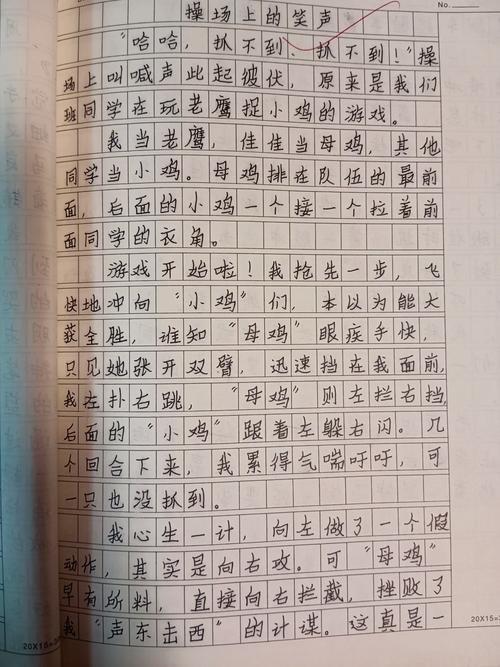 No.
操场上的笑声
“哈哈，抓不到、抓不到！”操
场上叫喊声此起彼伏，原来是我们
班同学在玩老鹰捉小鸡的游戏。
我当老鹰，佳佳当母鸡，其他
同学当小鸡。母鸡排在队伍的最前
面，后面的小鸡一个接一个拉着前
面同学的衣角。
游戏开始啦！我抢先一步，飞
快地冲向“小鸡”们，本以为能大
获全胜，谁知“母鸡”眼疾手快，
只见她张开双臂，迅速挡在我面前，
我左扑右跳，“母鸡”则左拦右挡，
后面的“小鸡”跟着左躲右闪。几
个回合下来，我累得气喘吁吁，可
一只也没抓到。
我心生一计，向左做了一个假
动作，其实是向右攻。可“母鸡”
早有所料，直接向右拦截，挫败了
我“声东击西”的计谋。这真是一
20X15=